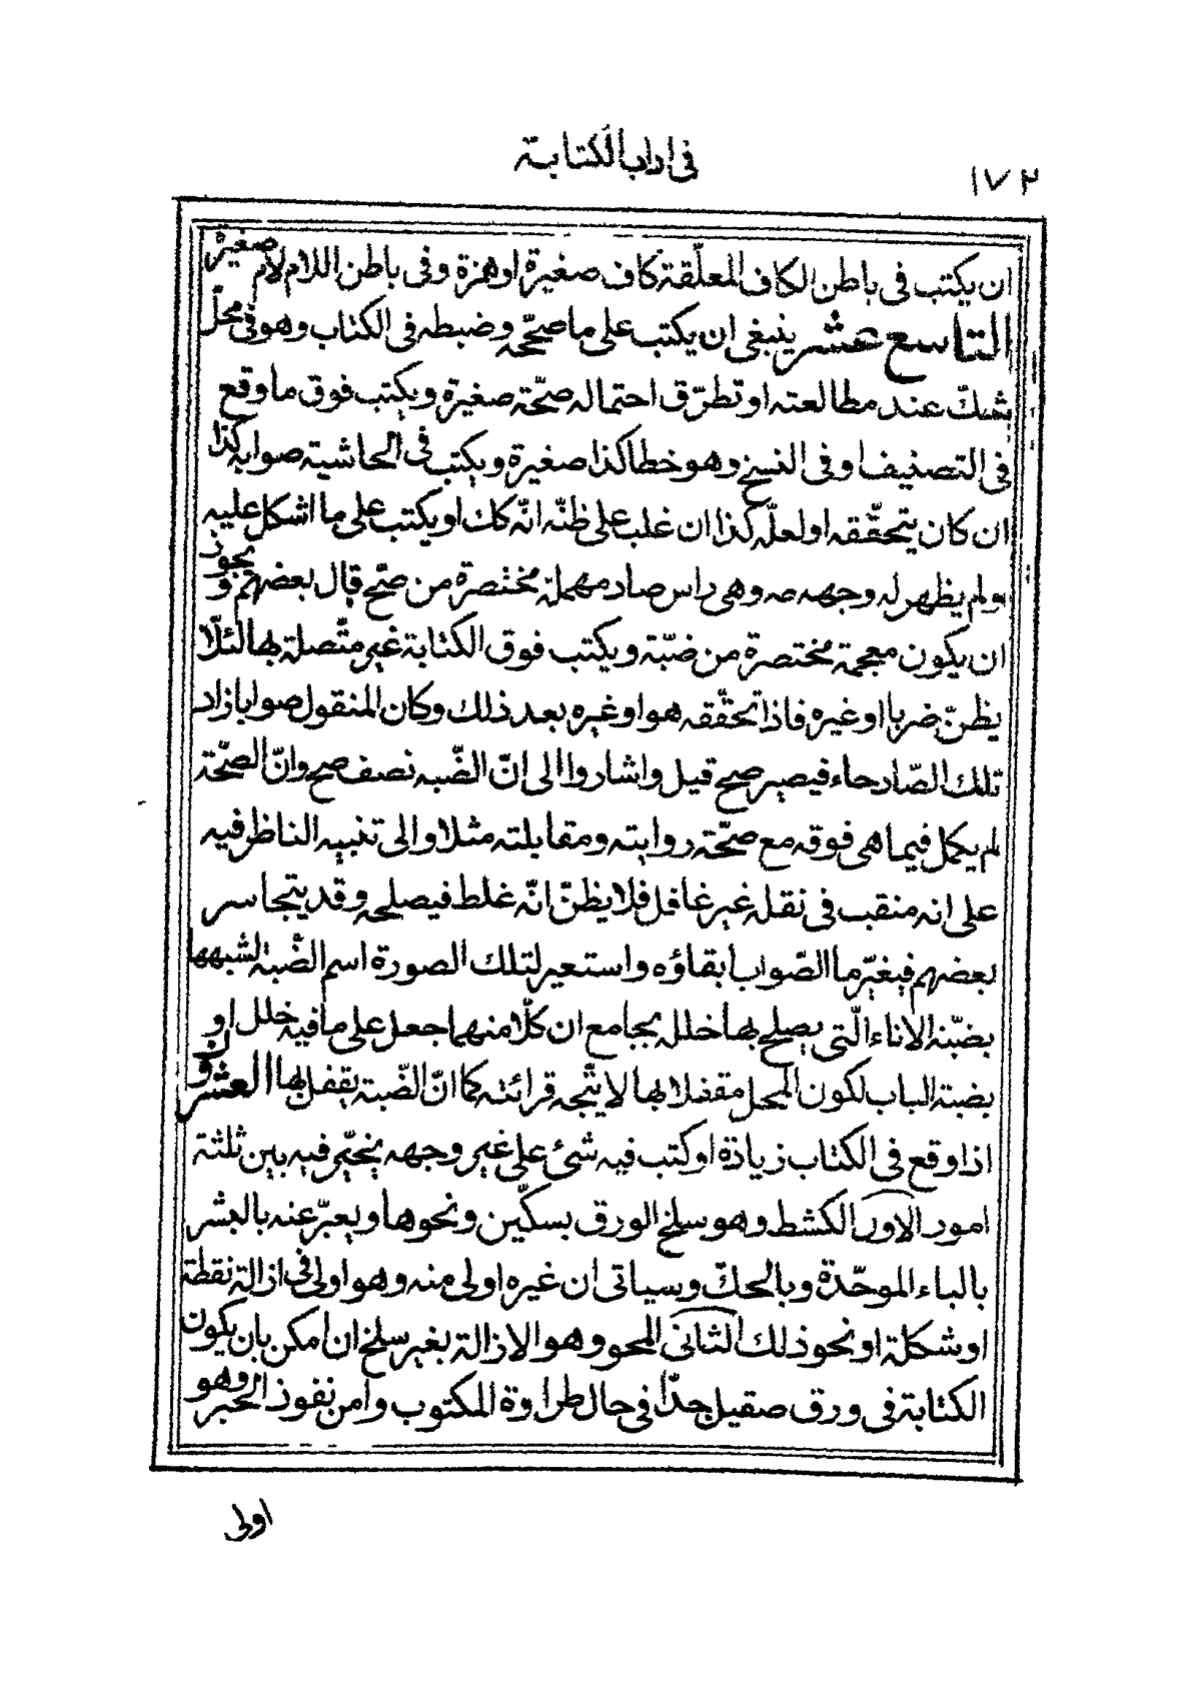 ١٧٢
فى اداب الكتابة
ان يكتب فى باطن الكاف المعلّقة كاف صغيرة او همزة وفى باطن اللام لام صغيرة
التاسع عشر ينبغى ان يكتب على ما صحّحه وضبطه فى الكتاب وهو فى محلّ
شكّ عند مطالعته او تطرّق احتماله صحّة صغيرة ويكتب فوق ما وقع
فى التصنيف او فى النسخ وهو خطا كذا صغيرة ويكتب فى الحاشية صوابه كذا
ان كان يتحقّقه او لعلّه كذا ان غلب على ظنّه انّه كك او يكتب على ما اشكل عليه
ولم يظهر له وجهه صه وهى راس صاد مهملة مختصرة من صحّ قال بعضهم ويجوز
ان يكون معجمة مختصرة من ضبّة ويكتب فوق الكتابة غير متّصلة بها لئلّا
يظنّ ضربا او غيره فاذا تحقّقه هو او غيره بعد ذلك وكان المنقول صوابا زاد
تلك الصّاد حاء فيصير صح قيل واشاروا الى انّ الضّبه نصف صح وانّ الصّحّة
لم يكمل فيما هى فوقه مع صحّة روايته ومقابلته مثلا والى تنبيه الناظر فيه
على انه منقب فى نقله غير غافل فلا يظنّ انّه غلط فيصلحه وقد يتجاسر
بعضهم فيغيّر ما الصّواب ابقاؤه واستعير لتلك الصورة اسم الضّبة لشبهها
بضبّة الاناء الّتى يصلح بها خلله بجامع ان كلّا منهما جعل على ما فيه خلل او
بضبة الباب لكون المحل مقفلا بها لا يتّجه قرائته كما انّ الضّبة يقفل بها العشرون
اذا وقع فى الكتاب زيادة او كتب فيه شئ على غير وجهه يخيّر فيه بين ثلثة
امور الاول الكشط وهو سلخ الورق بسكّين ونحوها ويعبّر عنه بالبشر
بالباء الموحّدة وبالحكّ وسياتى ان غيره اولى منه وهو اولى فى ازالة نقطة
او شكلة او نحو ذلك الثانى المحو وهو الازالة بغير سلخ ان امكن بان يكون
الكتابة فى ورق صقيل جدّا فى حال طراوة المكتوب وامن نفوذ الحبر وهو
اولى